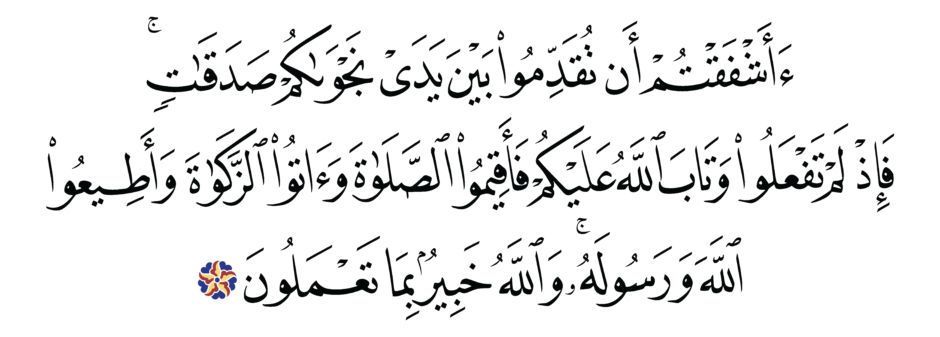 ءَأَشْفَقْتُمْ أَن تُقَدِّمُوا۟ بَيْنَ يَدَىْ نَجْوَىٰكُمْ صَدَقَٰتٍ ۚ
فَإِذْ لَمْ تَفْعَلُوا۟ وَتَابَ ٱللَّهُ عَلَيْكُمْ فَأَقِيمُوا۟ ٱلصَّلَوٰةَ وَءَاتُوا۟ ٱلزَّكَوٰةَ وَأَطِيعُوا۟
ٱللَّهَ وَرَسُولَهُۥ ۚ وَٱللَّهُ خَبِيرٌۢ بِمَا تَعْمَلُونَ